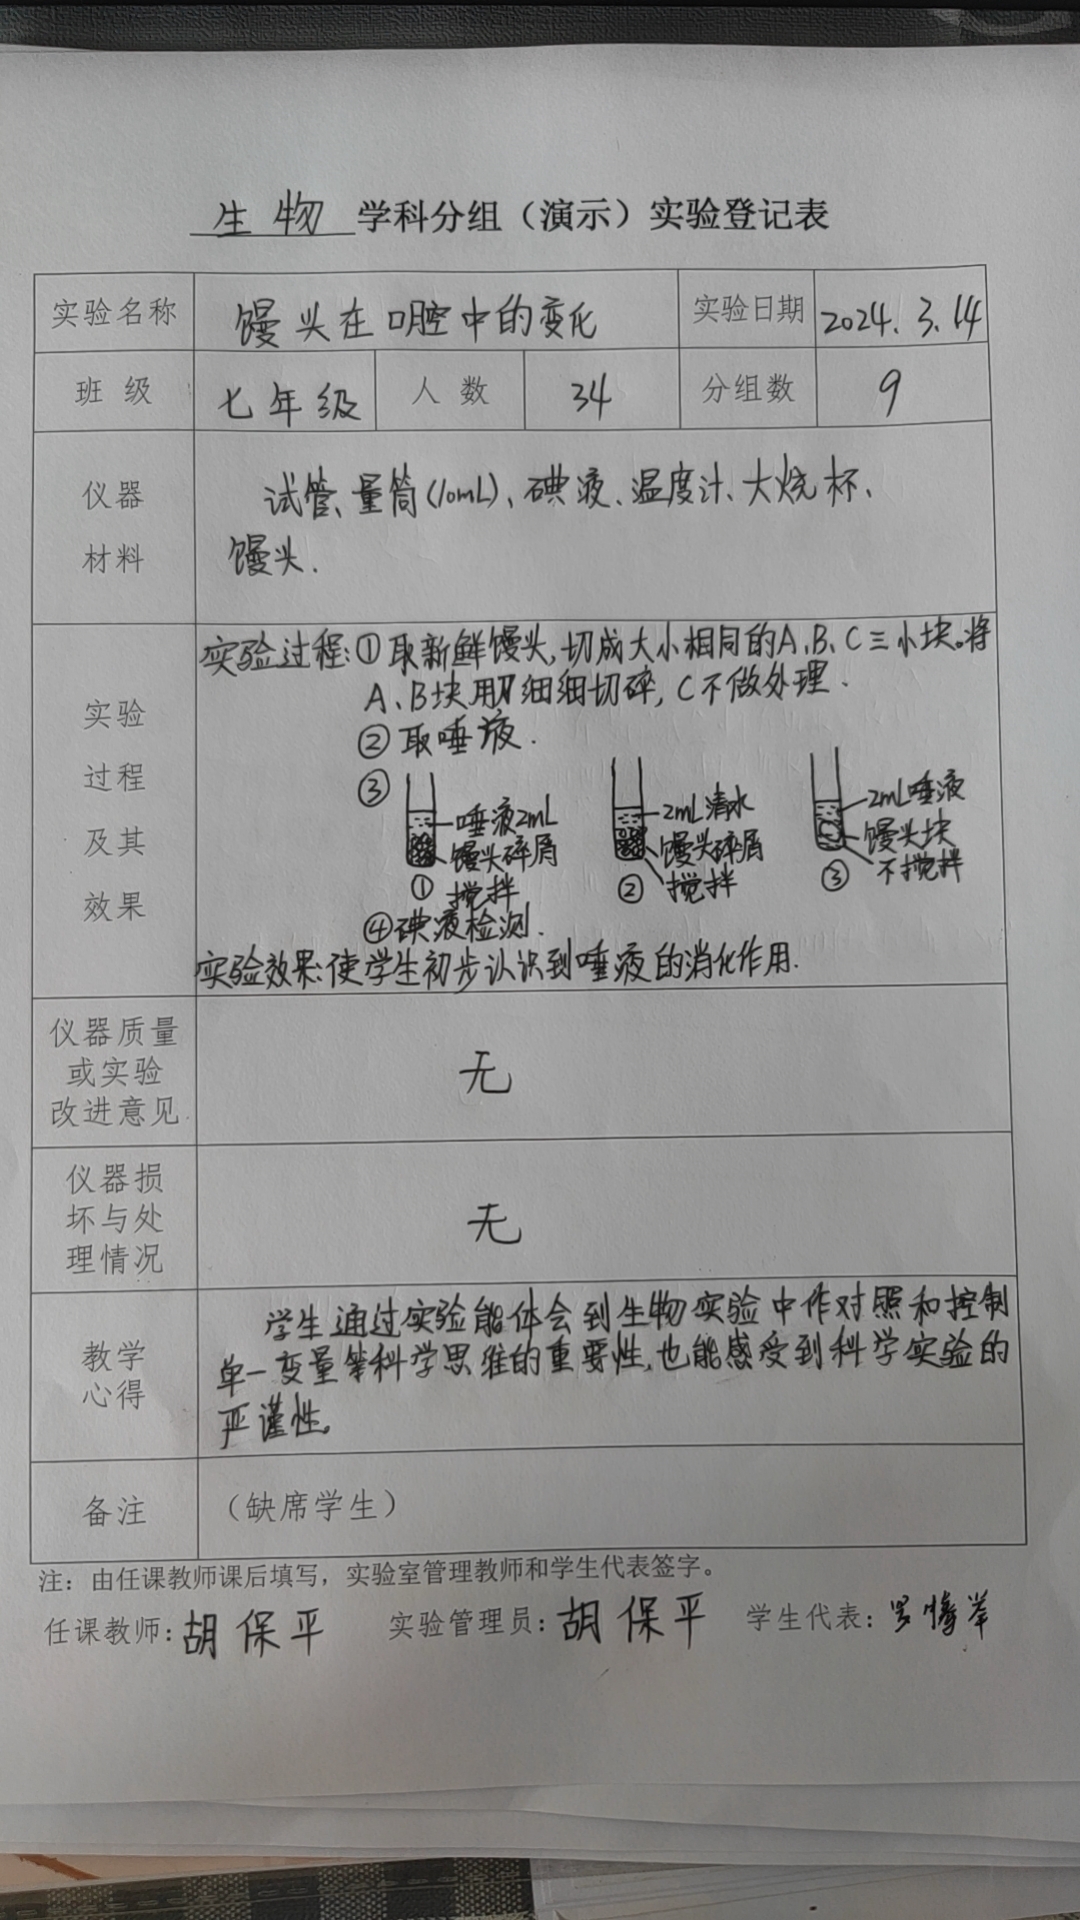 生物 学科分组（演示）实验登记表
实验名称 馒头在口腔中的变化 实验日期 2024.3.14
班级 七年级 人数 34 分组数 9
仪器
材料
试管、量筒(10mL)、碘液、温度计、大烧杯、
馒头.
实验
过程
及其
效果
实验过程:①取新鲜馒头,切成大小相同的A、B、C三小块。将
A、B块用刀细细切碎,C不做处理.
②取唾液.
③
唾液2mL
馒头碎屑
搅拌
①
2mL清水
馒头碎屑
搅拌
②
2mL唾液
馒头块
不搅拌
③
④碘液检测.
实验效果:使学生初步认识到唾液的消化作用.
仪器质量
或实验
改进意见
无
仪器损
坏与处
理情况
无
教学
心得
学生通过实验能体会到生物实验中作对照和控制
单一变量等科学思维的重要性,也能感受到科学实验的
严谨性。
备注 （缺席学生）
注：由任课教师课后填写，实验室管理教师和学生代表签字。
任课教师：胡保平 实验管理员：胡保平 学生代表：